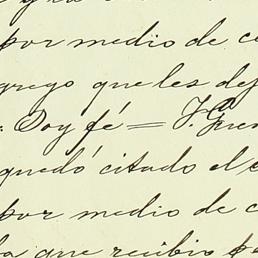 por medio de c
grego que les dej
: Doy fé = J. Guer
quedó citado el
por medio de c
la que recibio